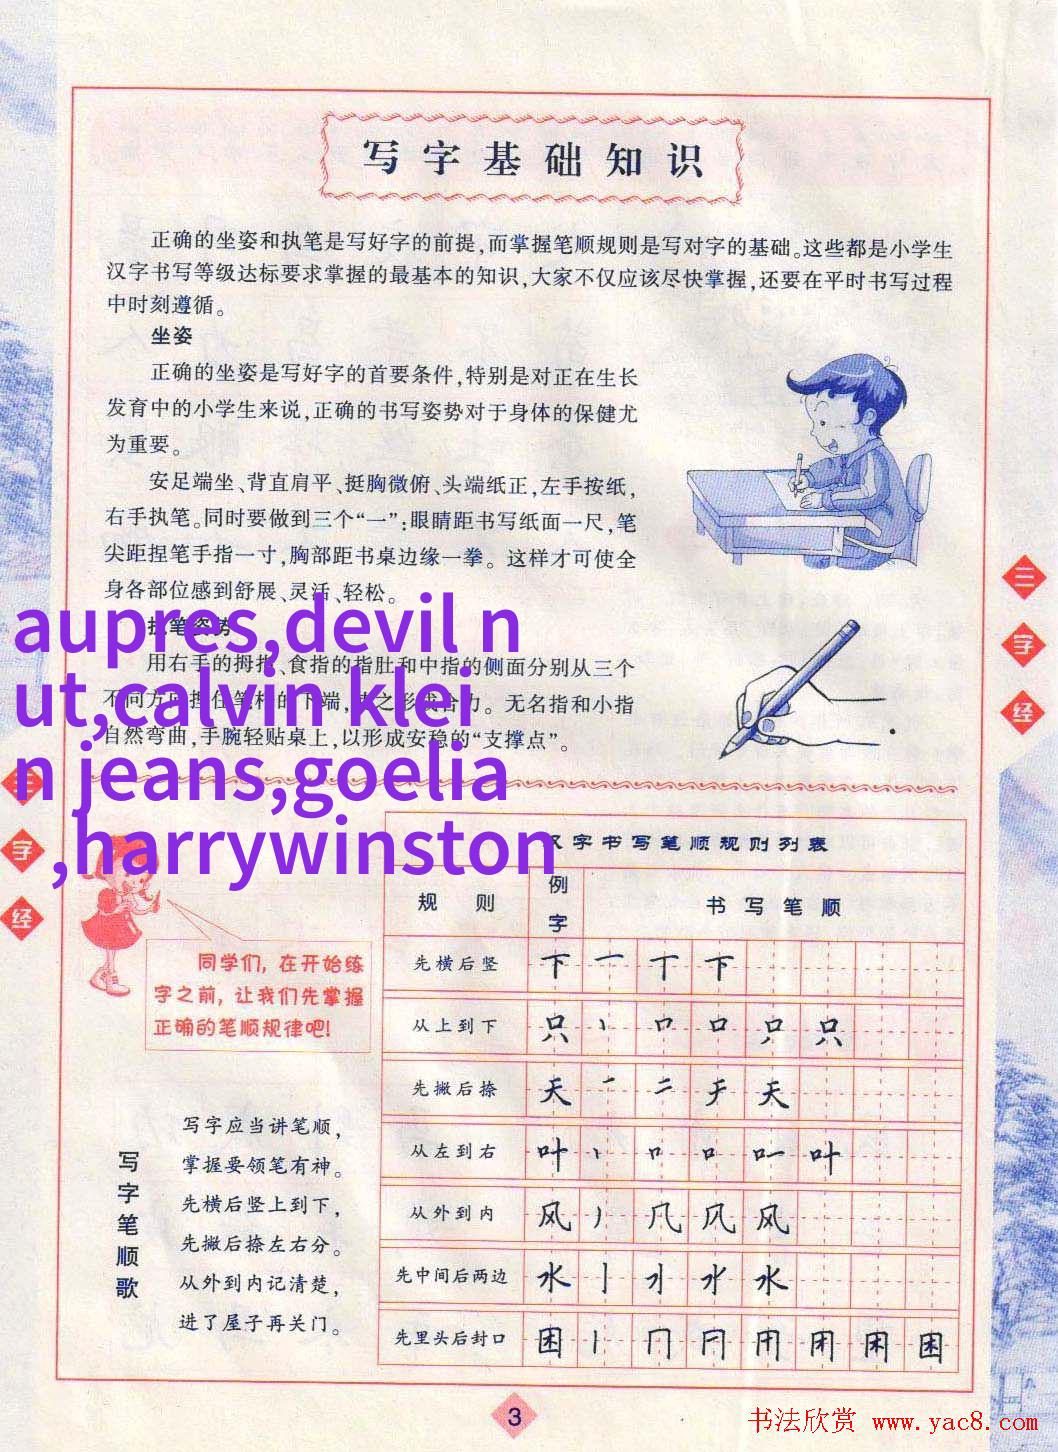 写字基础知识
正确的坐姿和执笔是写好字的前提,而掌握笔顺规则是写对字的基础。这些都是小学生
汉字书写等级达标要求掌握的最基本的知识,大家不仅应该尽快掌握,还要在平时书写过程
中时刻遵循。
坐姿
正确的坐姿是写好字的首要条件,特别是对正在生长
发育中的小学生来说,正确的书写姿势对于身体的保健尤
为重要。
安足端坐、背直肩平、挺胸微俯、头端纸正,左手按纸,
右手执笔。同时要做到三个“一”:眼睛距书写纸面一尺,笔
尖距捏笔手指一寸,胸部距书桌边缘一拳。这样才可使全
身各部位感到舒展、灵活、轻松。
aupres,devil n
ut,calvin klei
n jeans,goelia
,harrywinston
笔姿势
用右手的拇指、食指的指肚和中指的侧面分别从三个
不同方 端, 之形成合力。无名指和小指
自然弯曲,手腕轻贴桌上,以形成安稳的“支撑点”。
三字经
字经
同学们,在开始练
字之前,让我们先掌握
正确的笔顺规律吧!
写字笔顺歌
写字应当讲笔顺,
掌握要领笔有神。
先横后竖上到下,
先撇后捺左右分。
从外到内记清楚,
进了屋子再关门。
汉字书写笔顺规则列表
规则 例字 书写笔顺
先横后竖 下 一 丅 下
从上到下 只 丶 口 口 只
先撇后捺 天 一 二 天
从左到右 叶 丶 口 口 叶
从外到内 风 丿 几 风
先中间后两边 水 亅 水
先里头后封口 困 丨 冂 困
3
书法欣赏 www.yac8.com